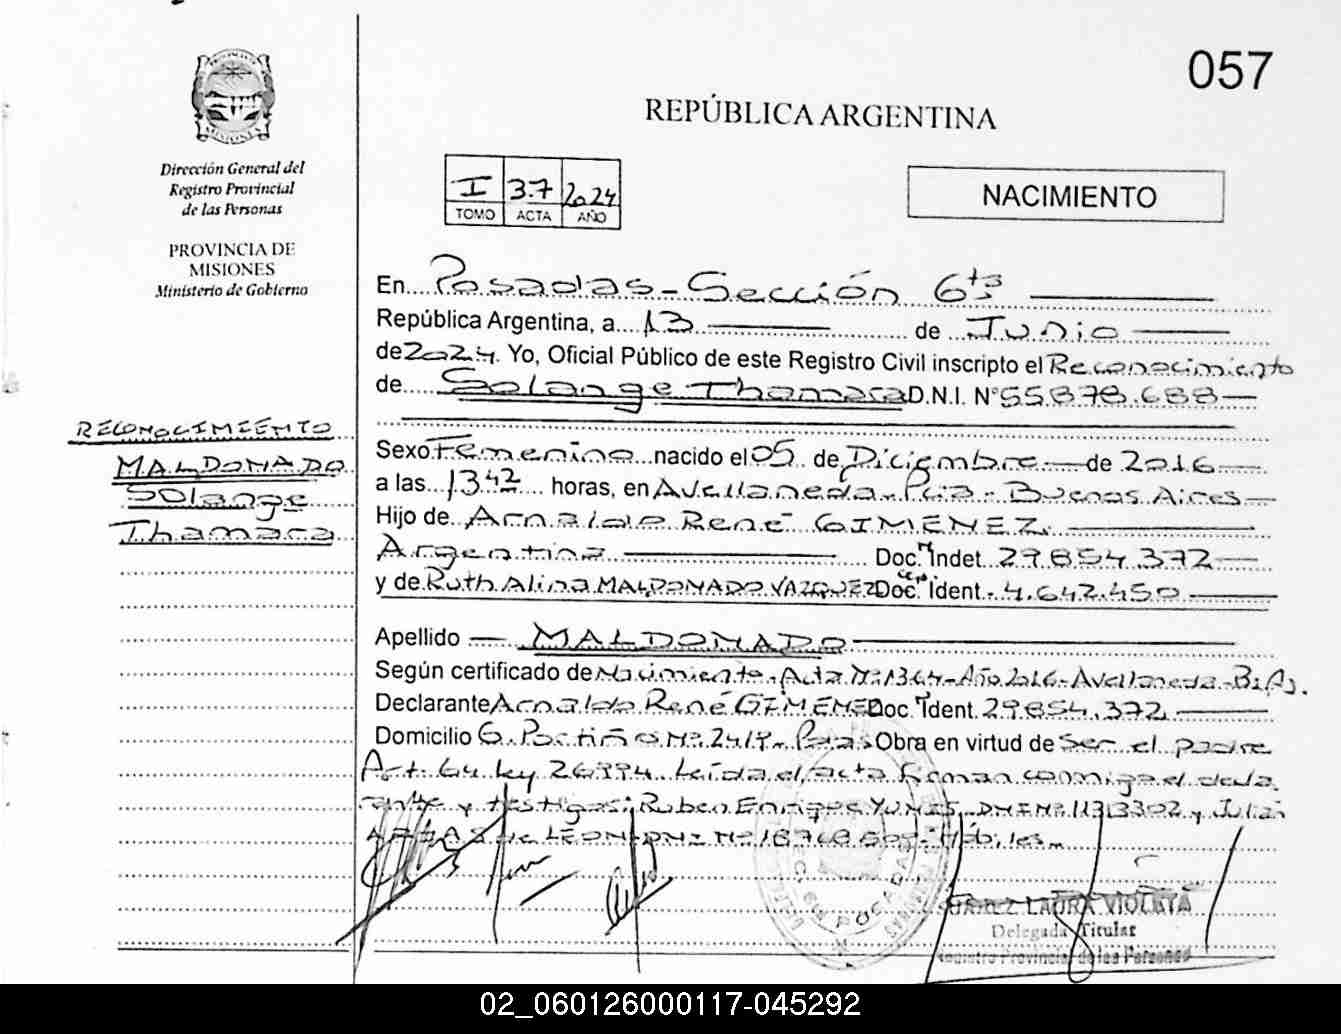 057
REPÚBLICA ARGENTINA
PROVINCIA DE
MISIONES
Dirección General del
Registro Provincial
de las Personas
PROVINCIA DE
MISIONES
Ministerio de Gobierno
I 37 2024
TOMO ACTA AÑO
NACIMIENTO
RECONOCIMIENTO
MALDONADO
Solange
Thamara
En Posadas - Sección 6ta
República Argentina, a 13 de Junio
de 2024. Yo, Oficial Público de este Registro Civil inscripto el Reconocimiento
de Solange Thamara D.N.I. N° 55.878.688
Sexo Femenino nacido el 05 de Diciembre de 2016
a las 13 42 horas, en Avellaneda - Pcia - Buenos Aires
Hijo de Arnaldo René GIMENEZ.
Argentina Doc. Indet. 29.854.372
y de Ruth Alina MALDONADO VAZQUEZ Doc. Ident. 4.642.450
Apellido MALDONADO
Según certificado de Nacimiento - Acta Nº 1364 - Año 2016 - Avellaneda - Bs As.
Declarante Arnaldo René GIMENEZ Doc. Ident. 29.854.372
Domicilio Nº 2419 - Pdas Obra en virtud de Ser el padre
Art. 64 Ley 26994. Leída el acta firman conmigo el decla
rante y testigos: Ruben Enrique YUNIS DNI Nº 11313302 y
de LEON DNI Nº Hábiles
POSADAS
SUAREZ LAURA VIOLETA
Delegada Titular
Registro Provincial de las Personas
02_060126000117-045292